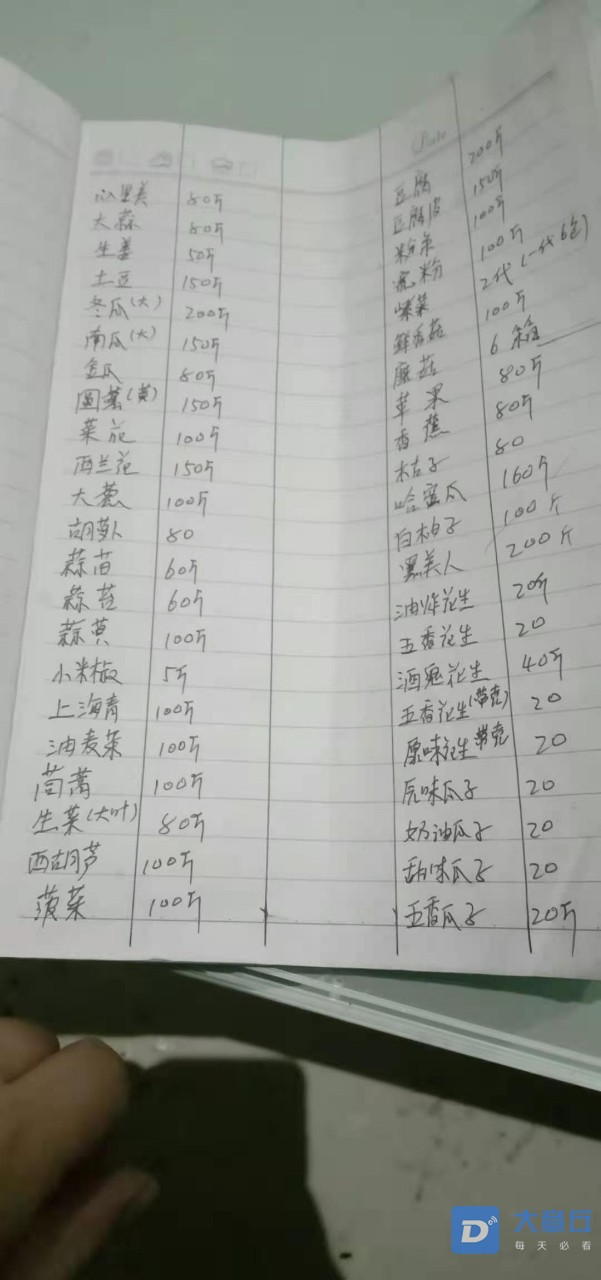 心里美 80斤
大蒜 80斤
生姜 50斤
土豆 150斤
冬瓜(大) 200斤
南瓜(大) 150斤
金瓜 80斤
圆葱(黄) 150斤
菜花 100斤
西兰花 150斤
大葱 100斤
胡萝卜 80
蒜苗 60斤
蒜苔 60斤
蒜黄 100斤
小米椒 5斤
上海青 100斤
油麦菜 100斤
茼蒿 100斤
生菜(大叶) 80斤
西胡芦 100斤
菠菜 100斤
Date
豆腐 200斤
豆腐皮 150斤
粉条 100斤
粉 100斤
紫菜 2代(一代6包)
鲜香菇 100斤
蘑菇 6箱
苹果 80斤
香蕉 80斤
桔子 80
哈蜜瓜 160斤
白柚子 100斤
黑美人 200斤
油炸花生 20斤
五香花生 20
酒鬼花生 40斤
五香花生(带壳) 20
原味花生带壳 20
原味瓜子 20
奶油瓜子 20
甜味瓜子 20
五香瓜子 20斤
大鱼丘
每天必看